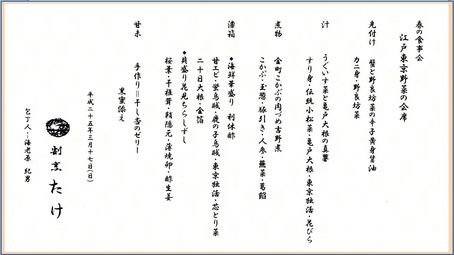 春の食事会
江戸東京野菜の会席
先付け 蟹と野良坊菜の辛子黄身醤油
カニ身・野良坊菜
汁 うぐいす菜と亀戸大根の真薯
すり身・伝統小松菜・亀戸大根・東京独活・花びら
煮物 金町こかぶの肉づめ吉野煮
こかぶ・玉葱・豚引き・人参・蕪菜・葛餡
酒箱 ◆海鮮華盛り 利休酢
甘エビ・蛍烏賊・鹿の子烏賊・東京独活・芯とり菜
二十日大根・金箔
◆具盛り花見ちらしずし
桜葉・干椎茸・穎隠元・薄焼卵・酢生姜
甘味 手作り=干し杏のゼリー
黒蜜添え
平成二十五年三月十七日(日)
割烹 たけ
包丁人・海老原 紀男